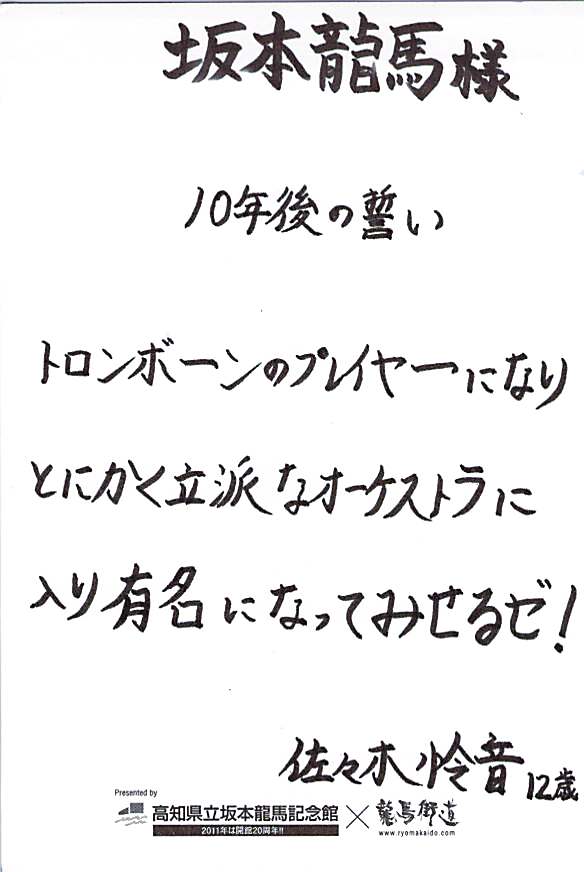 坂本龍馬様
10年後の誓い
トロンボーンのプレイヤーになり
とにかく立派なオーケストラに
入り有名になってみせるゼ!
佐々木怜音12歳
Presented by
高知県立坂本龍馬記念館×龍馬街道
2011年は開館20周年!!
www.ryomakaido.com